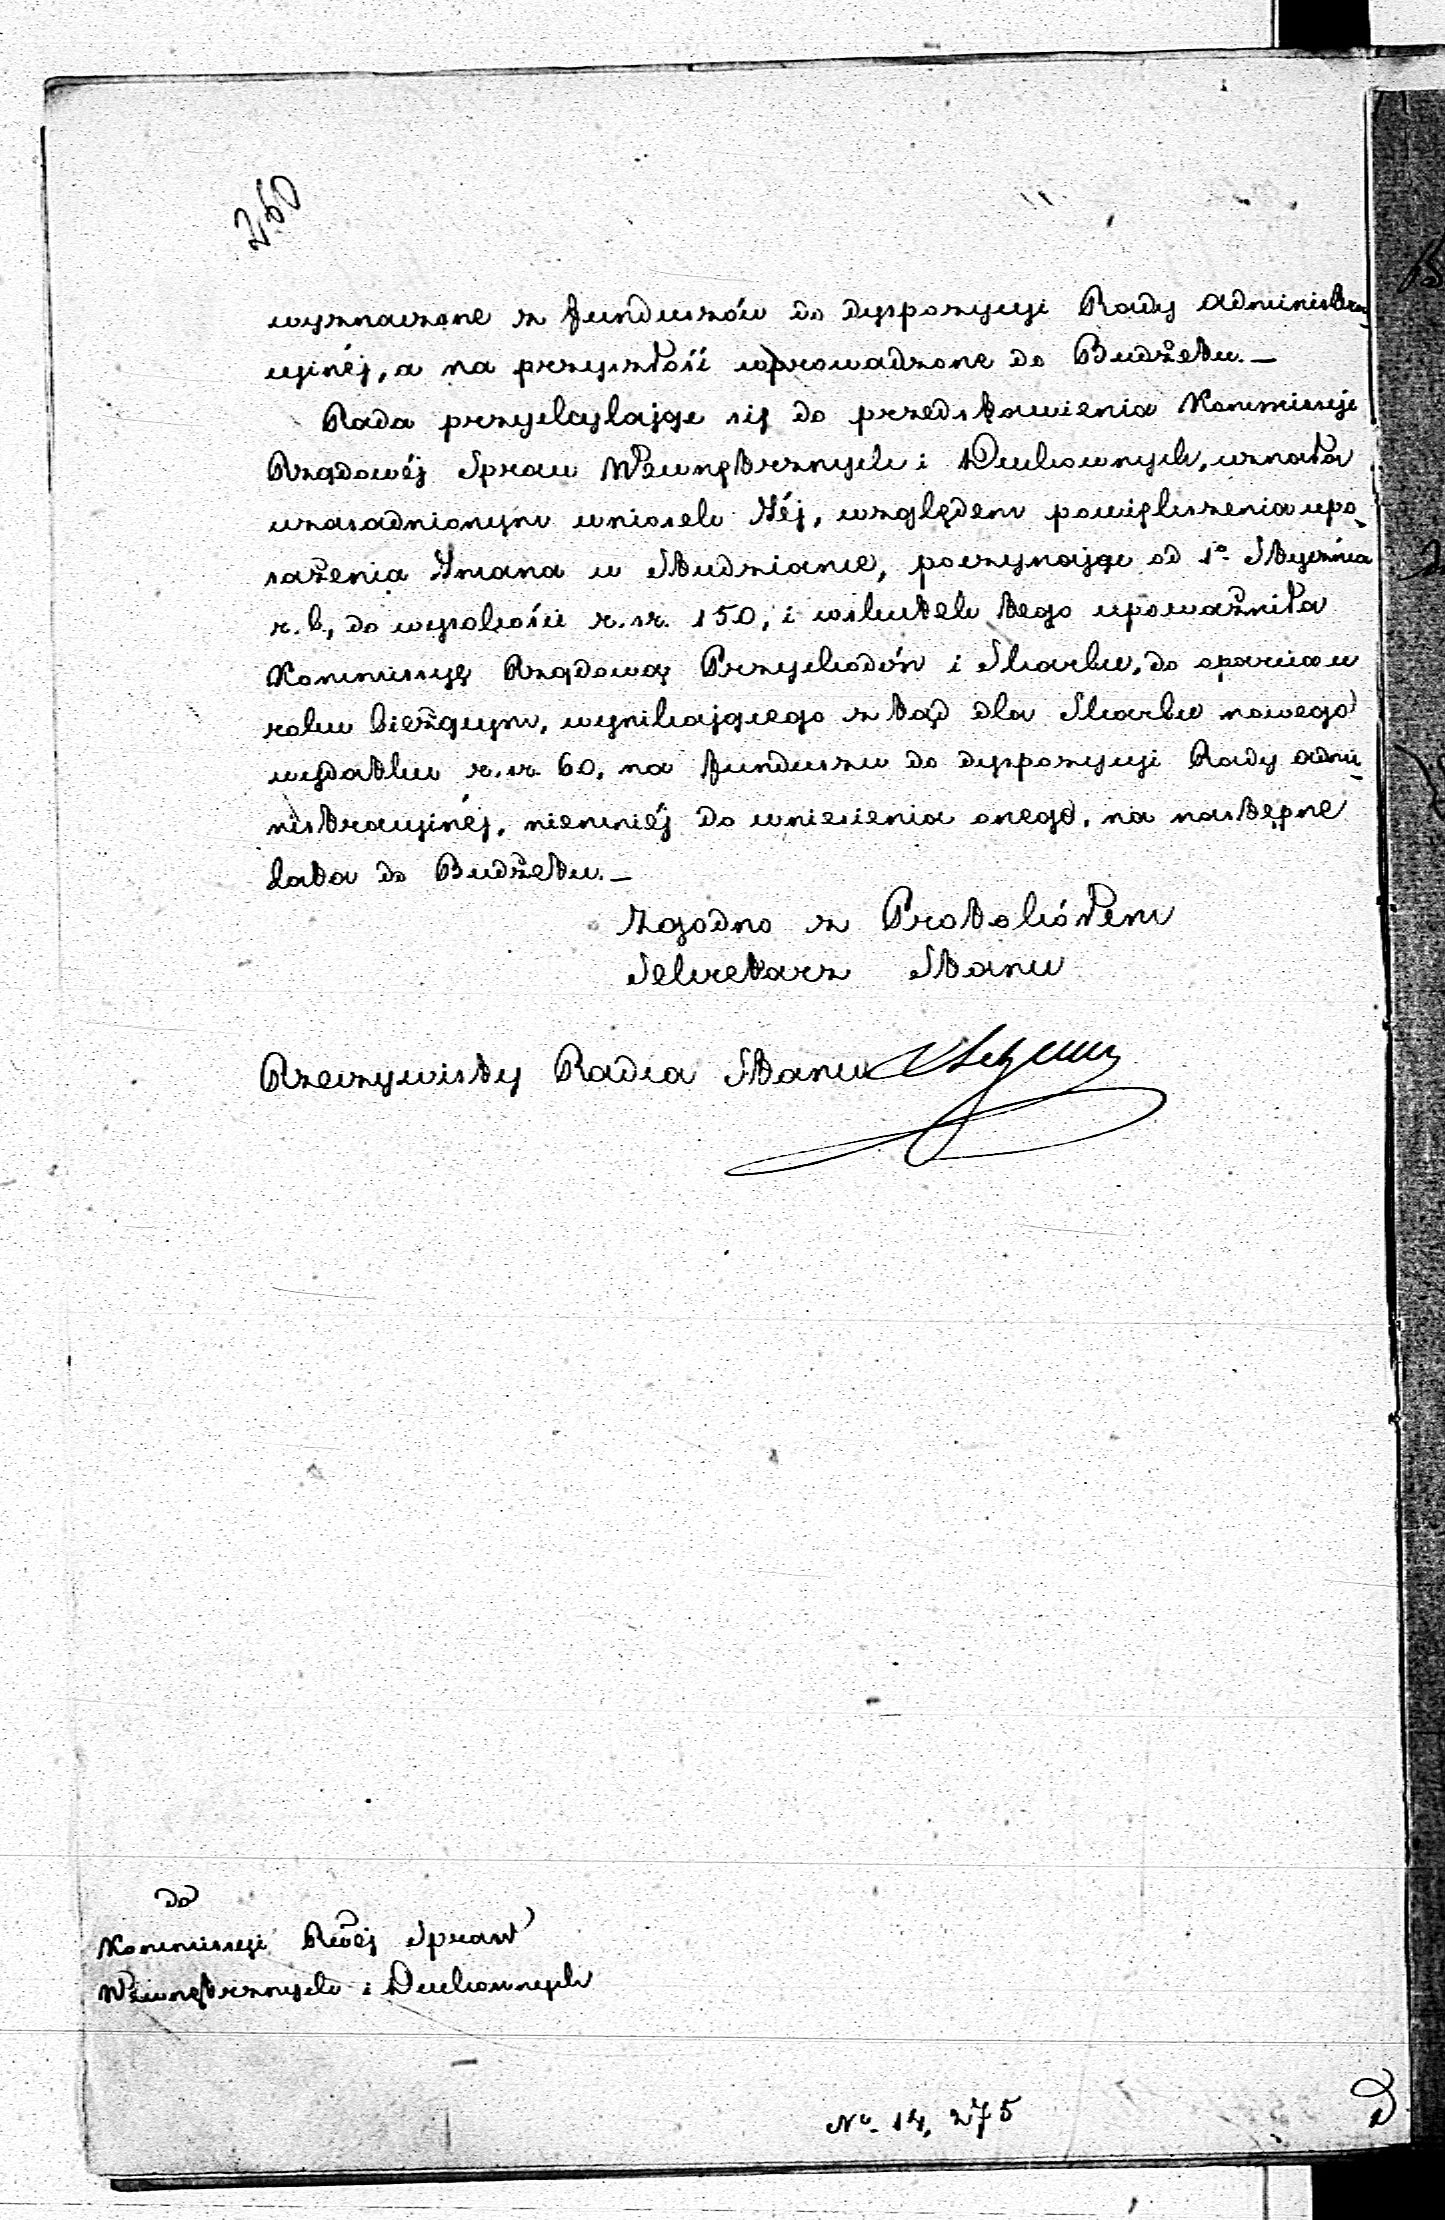 260
wyznaczone z funduszów do dyspozycyi Rady Administra-
cyinéj, a na przyszłość wprowadzone do Budżetu.—
Rada przychylając się do przedstawienia Kommissyi
Rządowéj Spraw Wewnętrznych i Duchownych, uznała
uzasadnionym wniosek Jéj, względem powiększenia upo-
sażenia Imana w Studziance, poczynając od 1º Stycznia
r. b, do wysokości r. sr. 150, i wskutek tego upoważniła
Kommissyę Rządową Przychodów i Skarbu, do oparcia w
roku bieżącym, wynikającego ztąd dla Skarbu nowego
wydatku r. sr. 60, na funduszu do dyspozycyi Rady Admi-
nistracyinéj, niemniéj do wniesienia onego, na następne
lata do Budżetu.—
Zgodno z Protokółem
Sekretarz Stanu
Rzeczywisty Radca Stanu
do
Kommissyi Rwéj Spraw
Wewnętrznych i Duchownych
No. 14,275